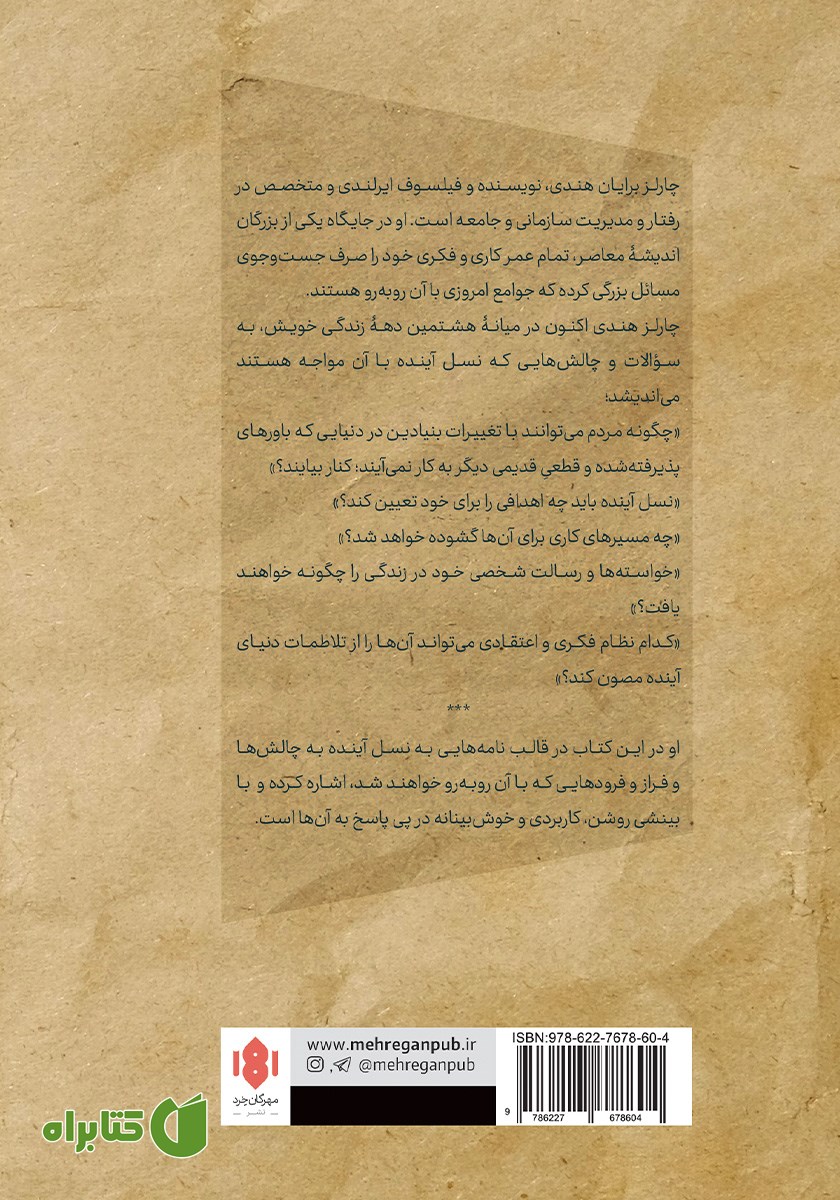 چارلز برایان هندی، نویسنده و فیلسوف ایرلندی و متخصص در
رفتار و مدیریت سازمانی و جامعه است. او در جایگاه یکی از بزرگان
اندیشهٔ معاصر، تمام عمر کاری و فکری خود را صرف جست‌وجوی
مسائل بزرگی کرده که جوامع امروزی با آن روبه‌رو هستند.
چارلز هندی اکنون در میانهٔ هشتمین دههٔ زندگی خویش، به
سؤالات و چالش‌هایی که نسل آینده با آن مواجه هستند
می‌اندیشد؛
«چگونه مردم می‌توانند با تغییرات بنیادین در دنیایی که باورهای
پذیرفته‌شده و قطعیِ قدیمی دیگر به کار نمی‌آیند؛ کنار بیایند؟»
«نسل آینده باید چه اهدافی را برای خود تعیین کند؟»
«چه مسیرهای کاری برای آن‌ها گشوده خواهد شد؟»
«خواسته‌ها و رسالت شخصی خود در زندگی را چگونه خواهند
یافت؟»
«کدام نظام فکری و اعتقادی می‌تواند آن‌ها را از تلاطمات دنیای
آینده مصون کند؟»
***
او در این کتاب در قالب نامه‌هایی به نسل آینده به چالش‌ها
و فراز و فرودهایی که با آن روبه‌رو خواهند شد، اشاره کرده و با
بینشی روشن، کاربردی و خوش‌بینانه در پی پاسخ به آن‌ها است.
ISBN:978-622-7678-60-4
9 786227 678604
www.mehreganpub.ir
@mehreganpub
مهرگان خرد
نشر
کتابراه